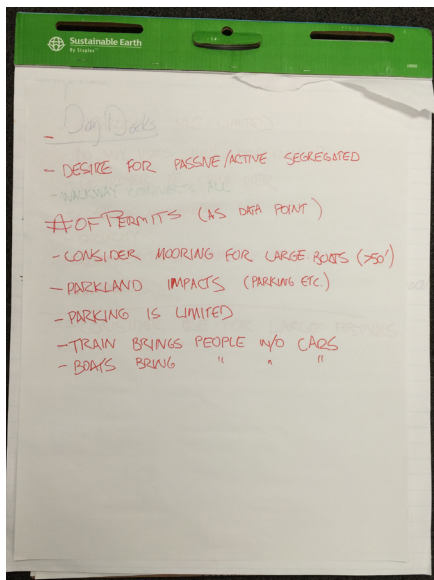 Sustainable Earth
By Staples
Day Docks
-
- DESIRE FOR PASSIVE/ACTIVE SEGREGATED
- WALKWAY CONNECTS ALL
# OF PERMITS (AS DATA POINT)
- CONSIDER MOORING FOR LARGE BOATS (>50')
- PARKLAND IMPACTS (PARKING ETC.)
- PARKING IS LIMITED
- TRAIN BRINGS PEOPLE W/O CARS
- BOATS BRING " " "